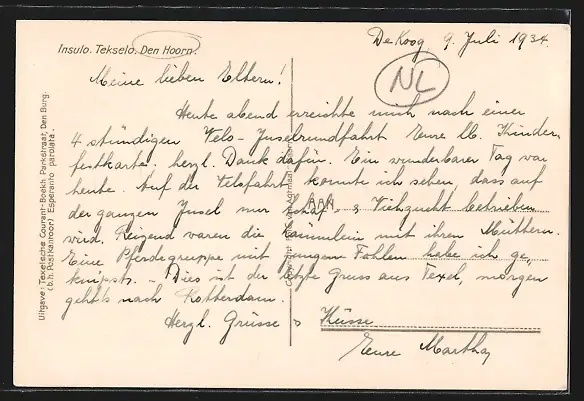 Insulo. Tekselo. Den Hoorn.
De Koog, 9. Juli 1934.
NL
Meine lieben Eltern!
Heute abend erreichte mich nach einer
4 stündigen Velo-Inselrundfahrt Eure lb. Kinder,
festkarte. herzl. Dank dafür. Ein wunderbarer Tag war
heute. Auf der Velofahrt konnte ich sehen, dass auf
der ganzen Insel nur Schaf- & Viehzucht betrieben
wird. Reizend waren die Lämmlein mit ihren Müttern.
Eine Pferdegruppe mit jungen Fohlen habe ich ge,
knipst. - Dies ist der letzte Gruss aus Texel, morgen
geht's nach Rotterdam.
Herzl. Grüsse & Küsse
Eure Martha
AAN
Uitgave: Texelsche Courant-Boekh. Parkstraat, Den Burg.
(b.h. Postkantoor) Esperanto parolata.